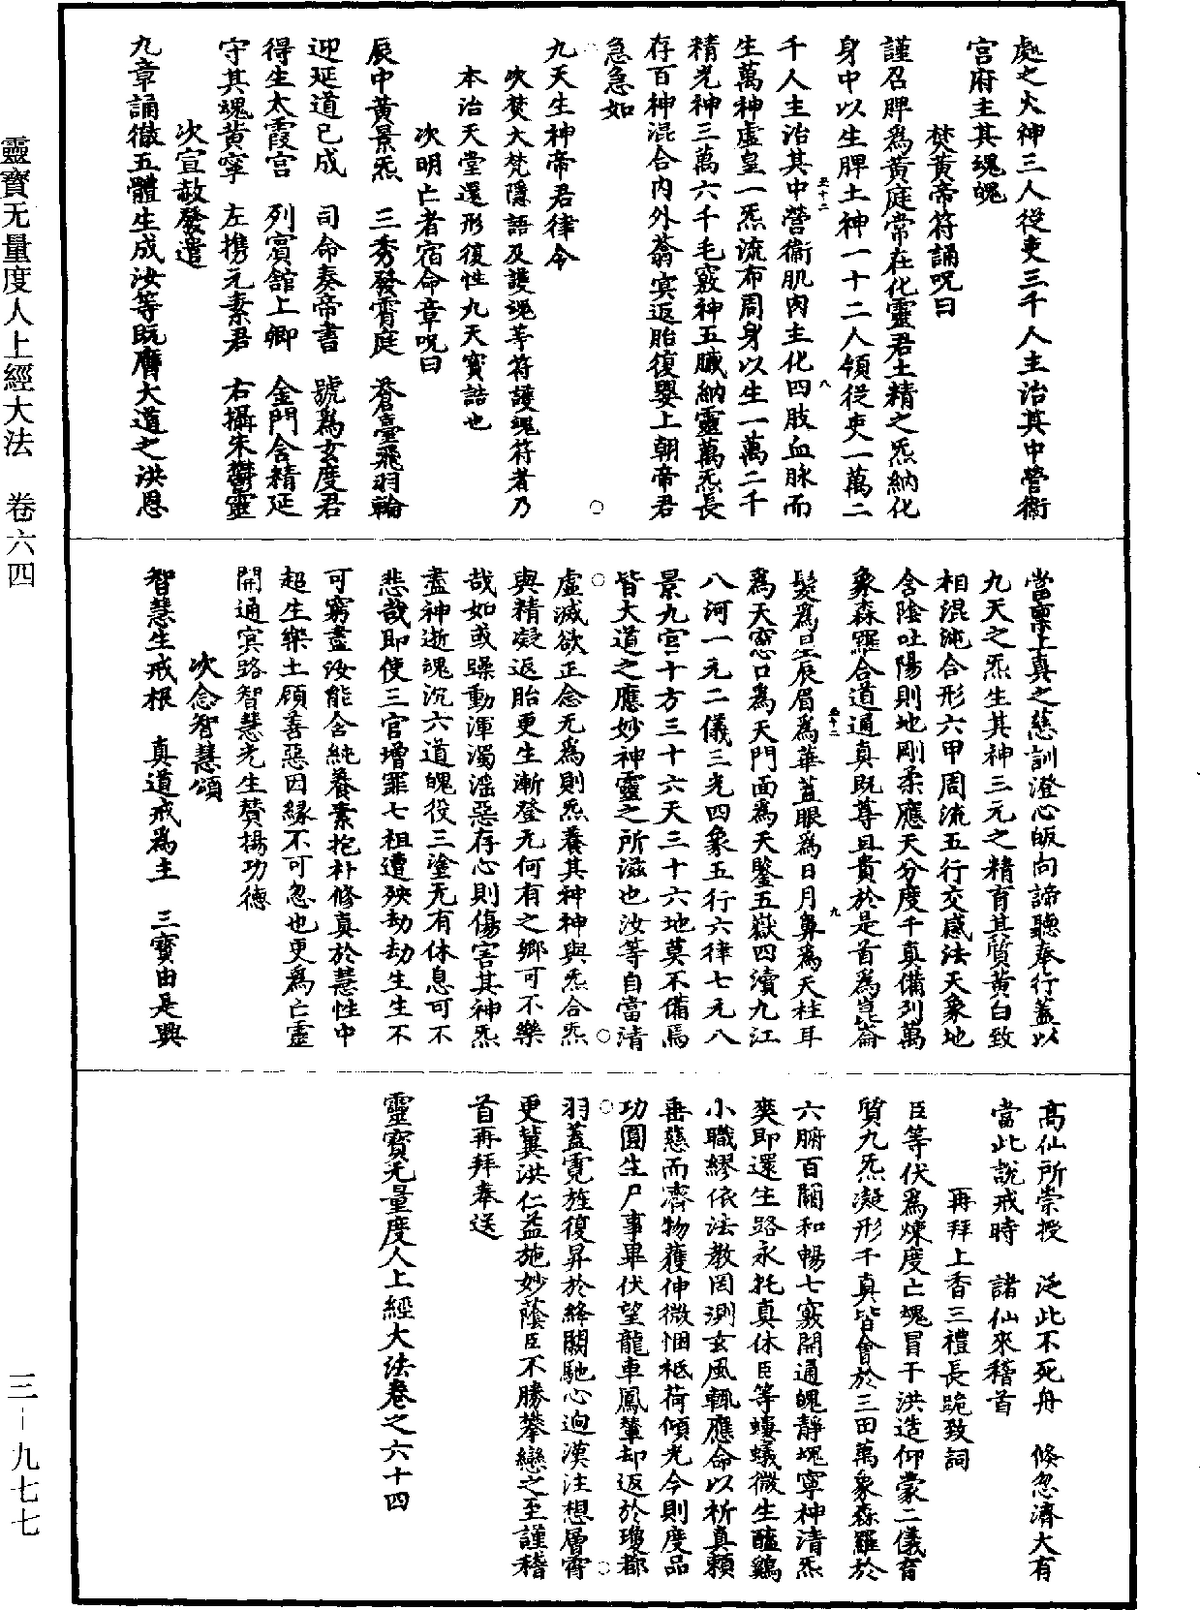 處之大神三人從吏三千人主治其中營衞
宮府主其魂魄
焚黃帝符誦呪曰
謹召脾爲黃庭常在化靈君土精之炁納化
身中以生脾土神一十二人領從吏一萬二
千人主治其中營衞肌肉主化四肢血脉而
生萬神虛皇一炁流布周身以生一萬二千
精光神三萬六千毛竅神五臟納靈萬炁長
存百神混合內外翕寘返胎復嬰上朝帝君
急急如
九天生神帝君律令
次焚大梵隱語及護魂等符護魂符者乃
本治天堂還形復性九天寳誥也
次明亡者宿命章呪曰
辰中黃景炁 三秀發霄庭 蒼臺飛羽輪
迎延道已成 司命奏帝書 號爲玄度君
得生太霞宮 列賓舘上卿 金門含精延
守其魂黃寧 左携元素君 右攝朱鬱靈
次宣赦發遣
九章誦徹五體生成汝等既膺大道之洪恩
當禀上真之慈訓澄心皈向諦聽奉行蓋以
九天之炁生其神三元之精育其質黃白致
相混沌合形六甲周流五行交感法天象地
含陰吐陽則地剛柔應天分度千真備列萬
象森羅合道通真既尊且貴於是首爲崑崙
髮爲星辰眉爲華蓋眼爲日月鼻爲天柱耳
爲天窓口爲天門面爲天鑒五嶽四瀆九江
八河一元二儀三光四象五行六律七元八
景九宮十方三十六天三十六地莫不備焉
皆大道之應妙神靈之所滋也汝等自當清
虛滅欲正念无爲則炁養其神神與炁合炁
與精凝返胎更生漸登无何有之鄉可不樂
哉如或躁動渾濁滛惡存心則傷害其神炁
盡神逝魂沉六道魄役三塗无有休息可不
悲哉即使三官增罪七祖遭殃劫劫生生不
可窮盡汝能含純養素抱朴修真於慧性中
超生樂土頋善惡因緣不可忽也更爲亡靈
開通冥路智慧光生賛揚功德
次念智慧頌
智慧生戒根 真道戒爲主 三寳由是興
高仙所崇授 泛此不死舟 倐忽濟大有
當此說戒時 諸仙來稽首
再拜上香三禮長跪致詞
臣等伏爲煉度亡魂冒干洪造仰蒙二儀育
質九炁凝形千真皆會於三田萬象森羅於
六腑百關和暢七竅開通魄靜魂寧神清炁
爽即還生路永托真休臣等螻蟻微生醯鷄
小職繆依法教罔測玄風輒應命以祈真賴
垂慈而濟物獲伸微悃袛荷傾光今則度品
功圓生尸事畢伏望龍車鳳輦却返於瓊都
羽蓋霓旌復昇於絳闕馳心逈漢注想層霄
更冀洪仁益施妙蔭臣不勝攀戀之至謹稽
首再拜奉送
靈寳无量度人上經大法卷之六十四
五十二
八
五十二
九
靈寶无量度人上經大法 卷六四
三－九七七